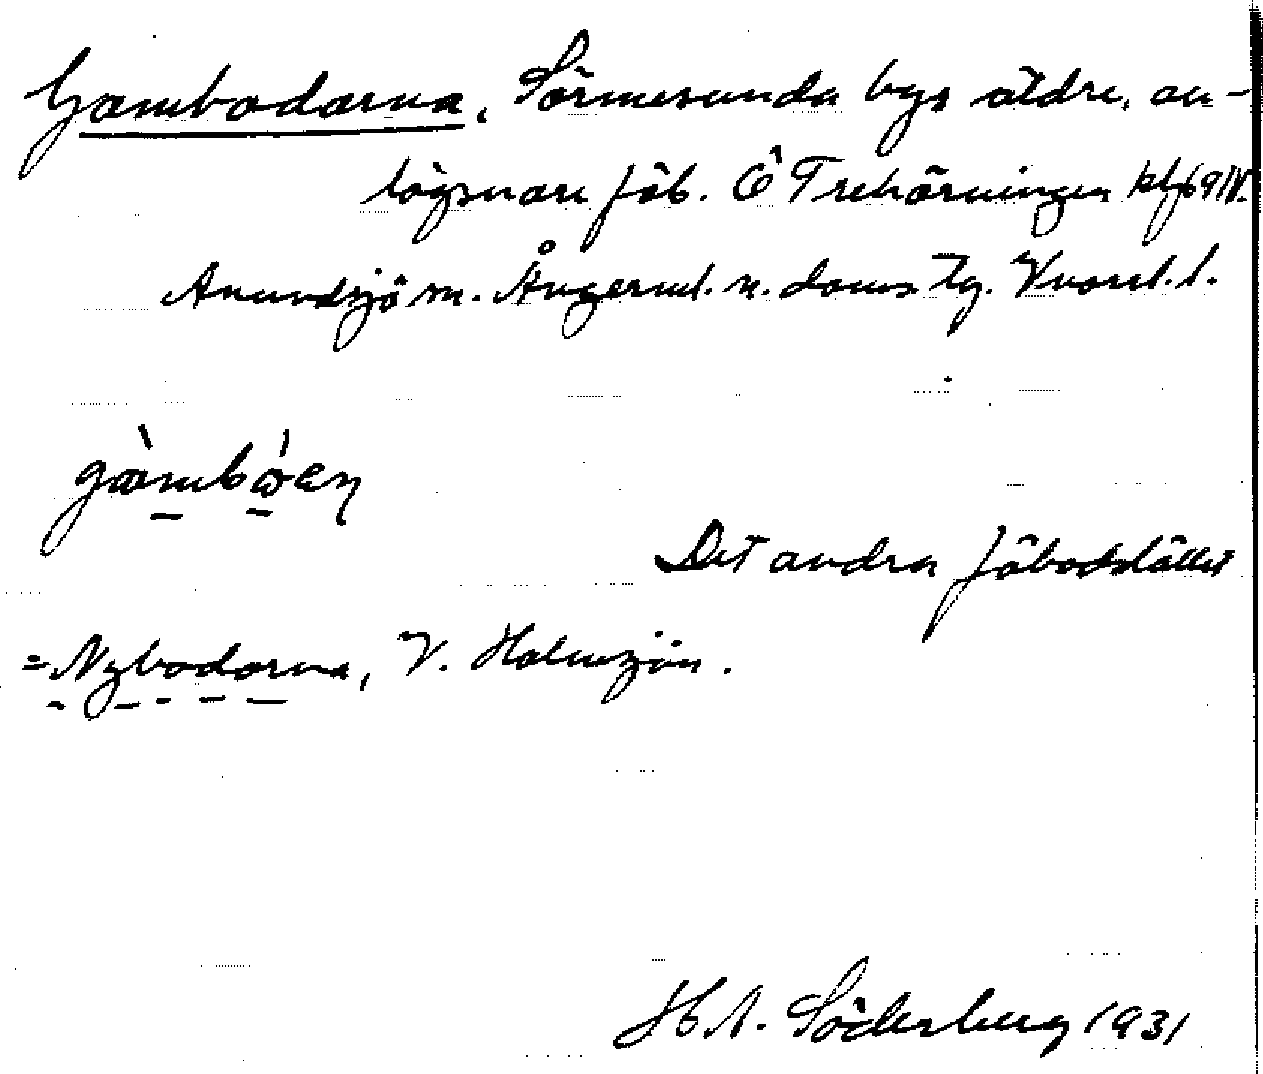 Gambodarna, Sörmesunda bys äldre, av-
lägsnare fäb. Ö Trehörningen kbl 69 IV.
Anundsjö sn. Ångerml. n. doms tg. Vnorrl. l.
gàmbó̀en
Det andra fäbodstället
= Nybodarna, V. Holmsjön.
H A. Söderberg 1931